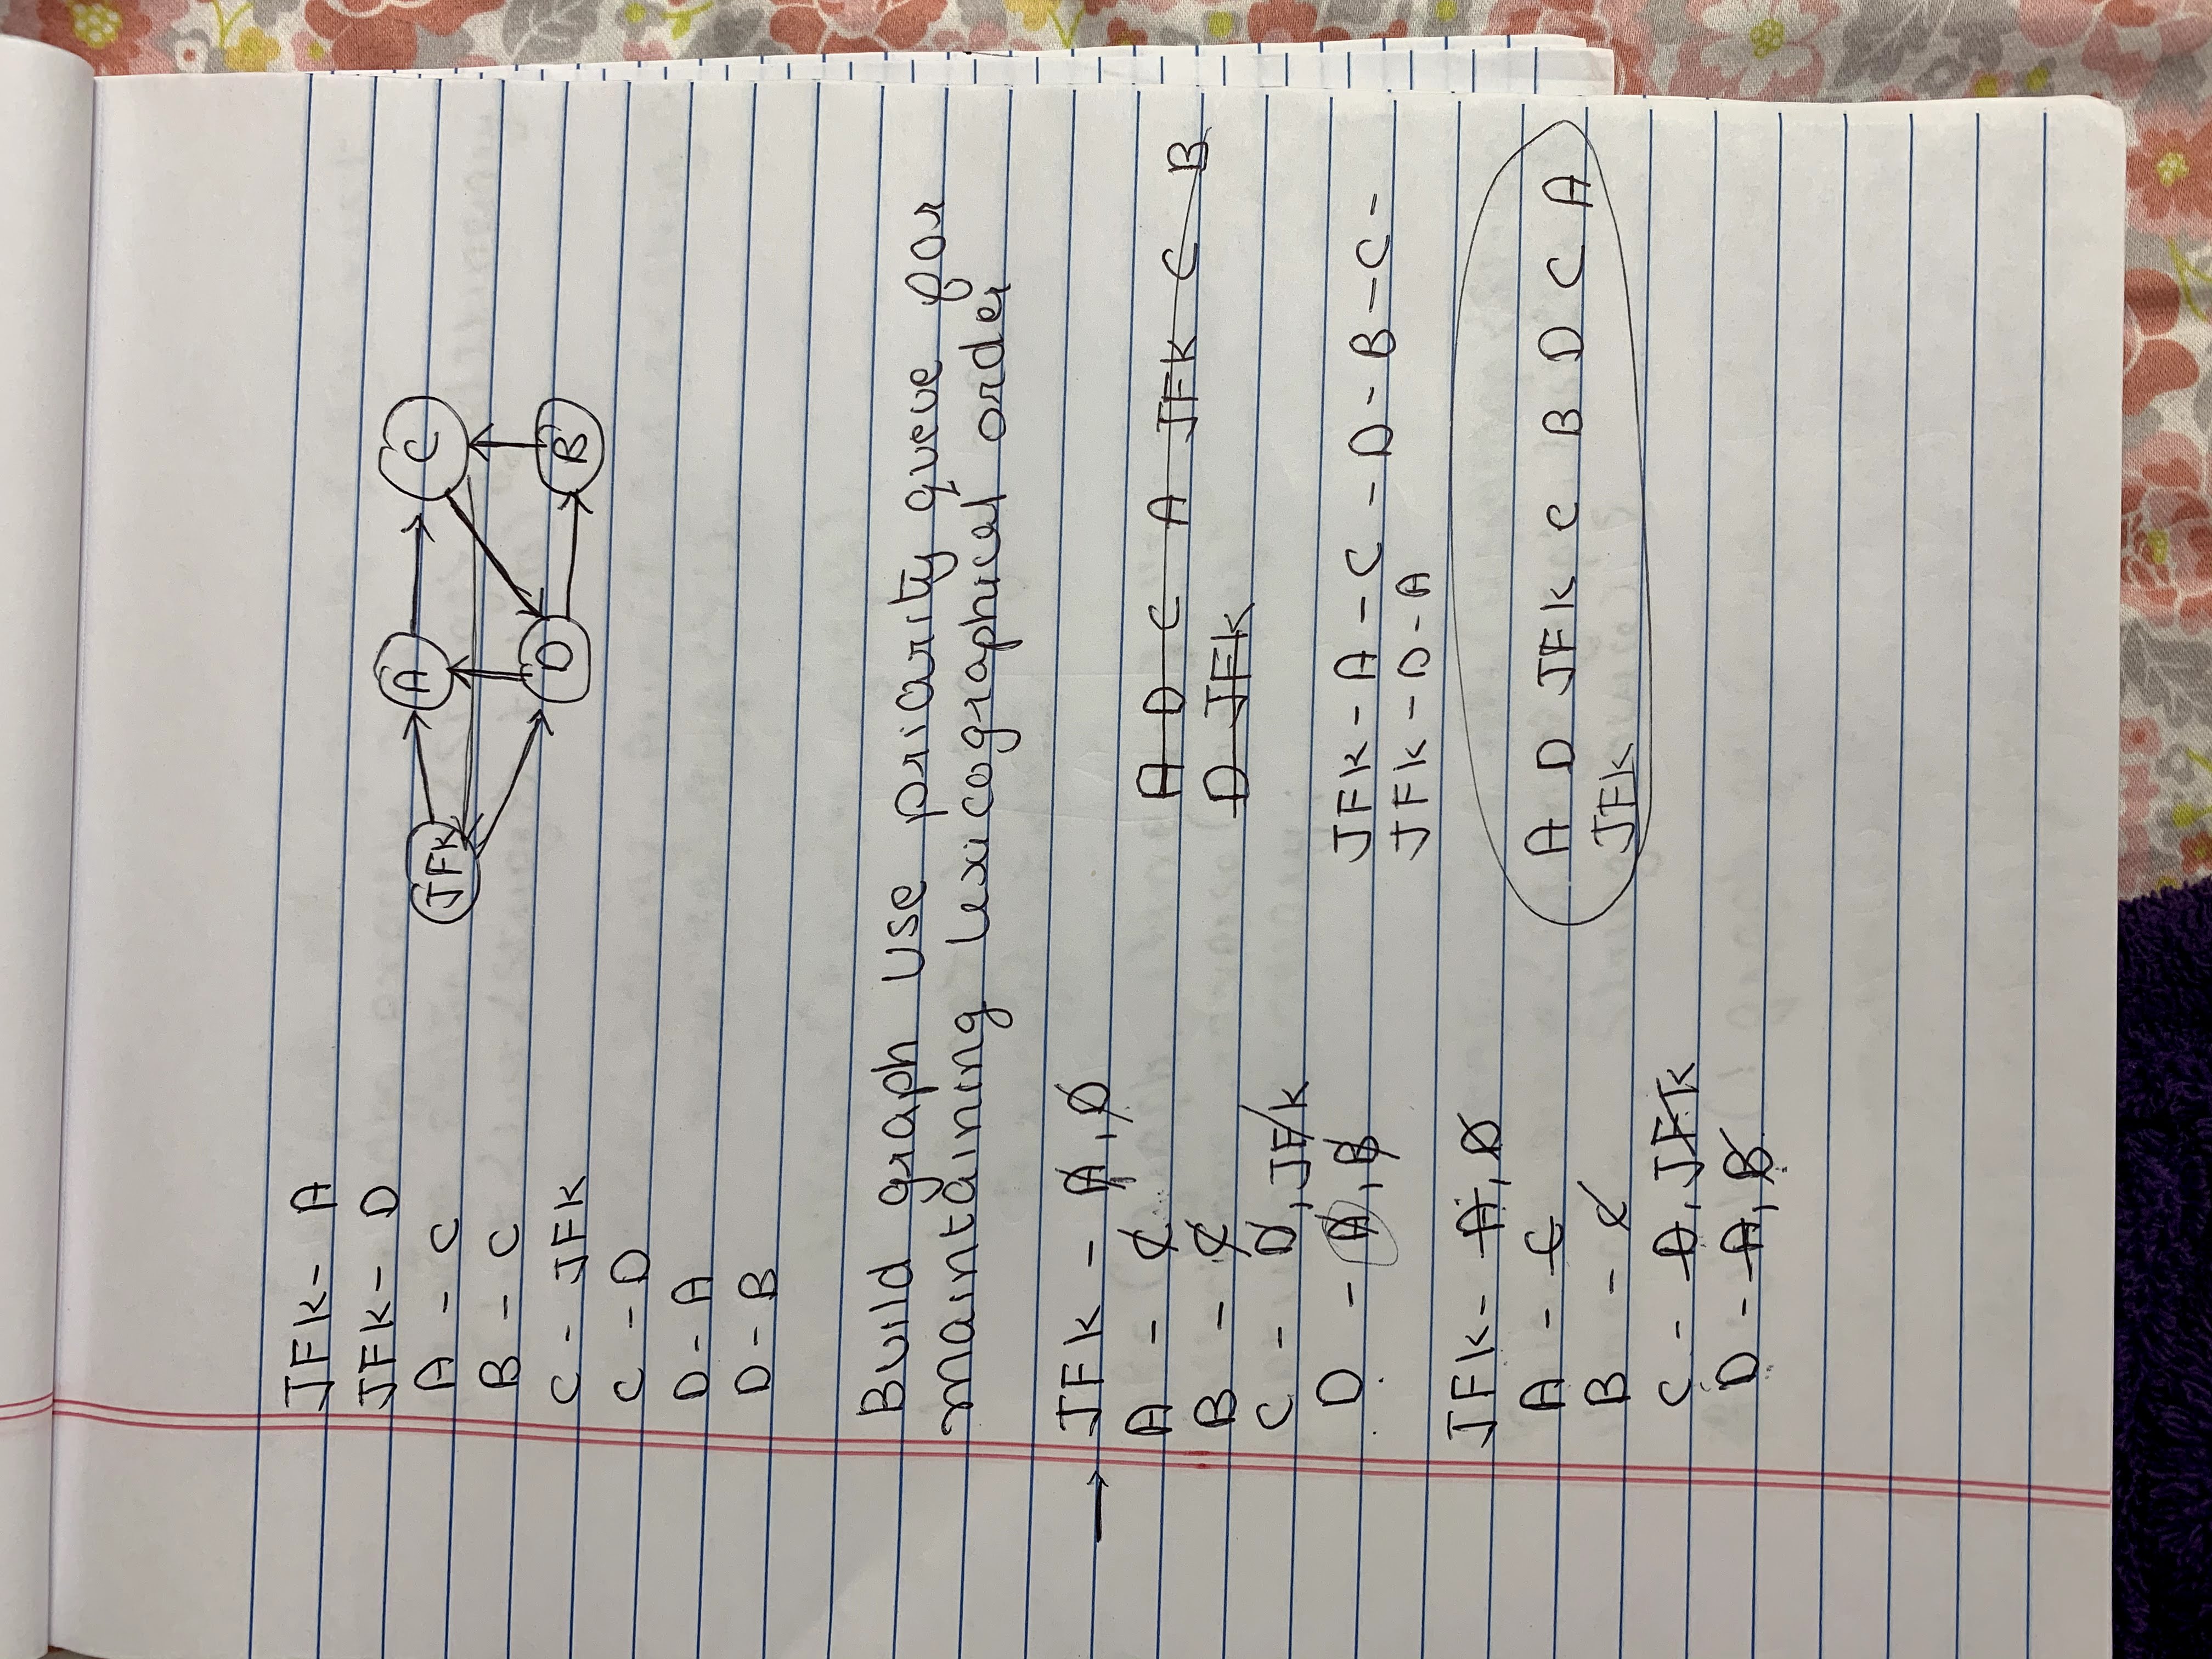 JFK - A
JFK - D
A - C
B - C
C - JFK
C - D
D - A
D - B
JFK
A
C
D
B
Build graph use priority queue for
maintaining lexicographical order
JFK - A, D
A - C
B - C
C - D, JFK
D - A, B
A D C A JFK C B
D JFK
JFK - A - C - D - B - C -
JFK - D - A
JFK - A, D
A - C
B - C
C - D, JFK
D - A, B
A D JFK C B D C A
JFK